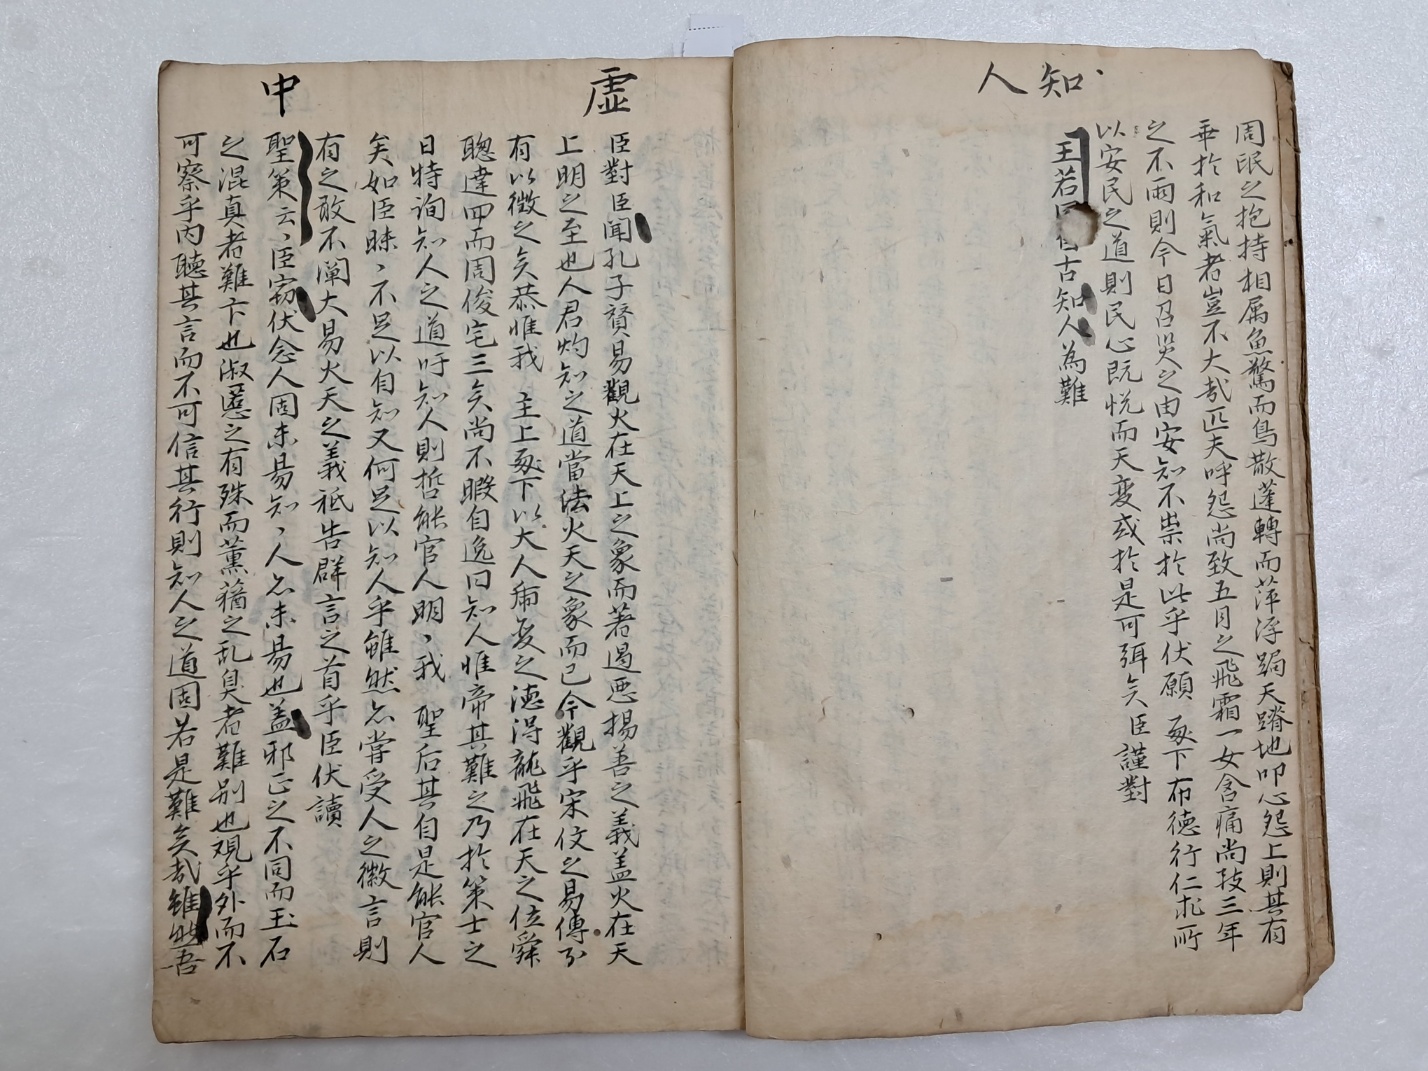 知人
周氓之抱持相属魚驚而鳥散蓬轉而萍浮跼天蹐地叩心怨上則其有
乖於和氣者豈不大哉匹夫呼怨尚致五月之飛霜一女含痛尚致三年
之不雨則今日召灾之由安知不祟於此乎伏願 殿下布德行仁求所
以安民之道則民心既悅而天变或於是可弭矣臣謹對
王若曰自古知人為難
虛
中
臣對臣聞孔子贊易觀火在天上之象而著遏惡揚善之義盖火在天
上明之至也人君灼知之道當法火天之象而已今觀乎宋伩之易傳分
有以徵之矣恭惟我 主上殿下以大人𤰇之德得龍飛在天之位舜
聰達四而周俊宅三矣尚不暇自逸曰知人惟帝其難之乃於策士之
日特詢知人之道吁知人則哲能官人明〻我 聖后其自是能官人
矣如臣昧〻不足以自知又何足以知人乎雖然亦嘗受人之徽言則
有之敢不闡大易火天之義祗告群言之首乎臣伏讀
聖策云〻臣竊伏念人固未易知〻人亦未易也盖邪正之不同而玉石
之混真者難卞也淑慝之有殊而薰蕕之乱臭者難别也觀乎外而不
可察乎内聽其言而不可信其行則知人之道固若是難矣哉雖然吾